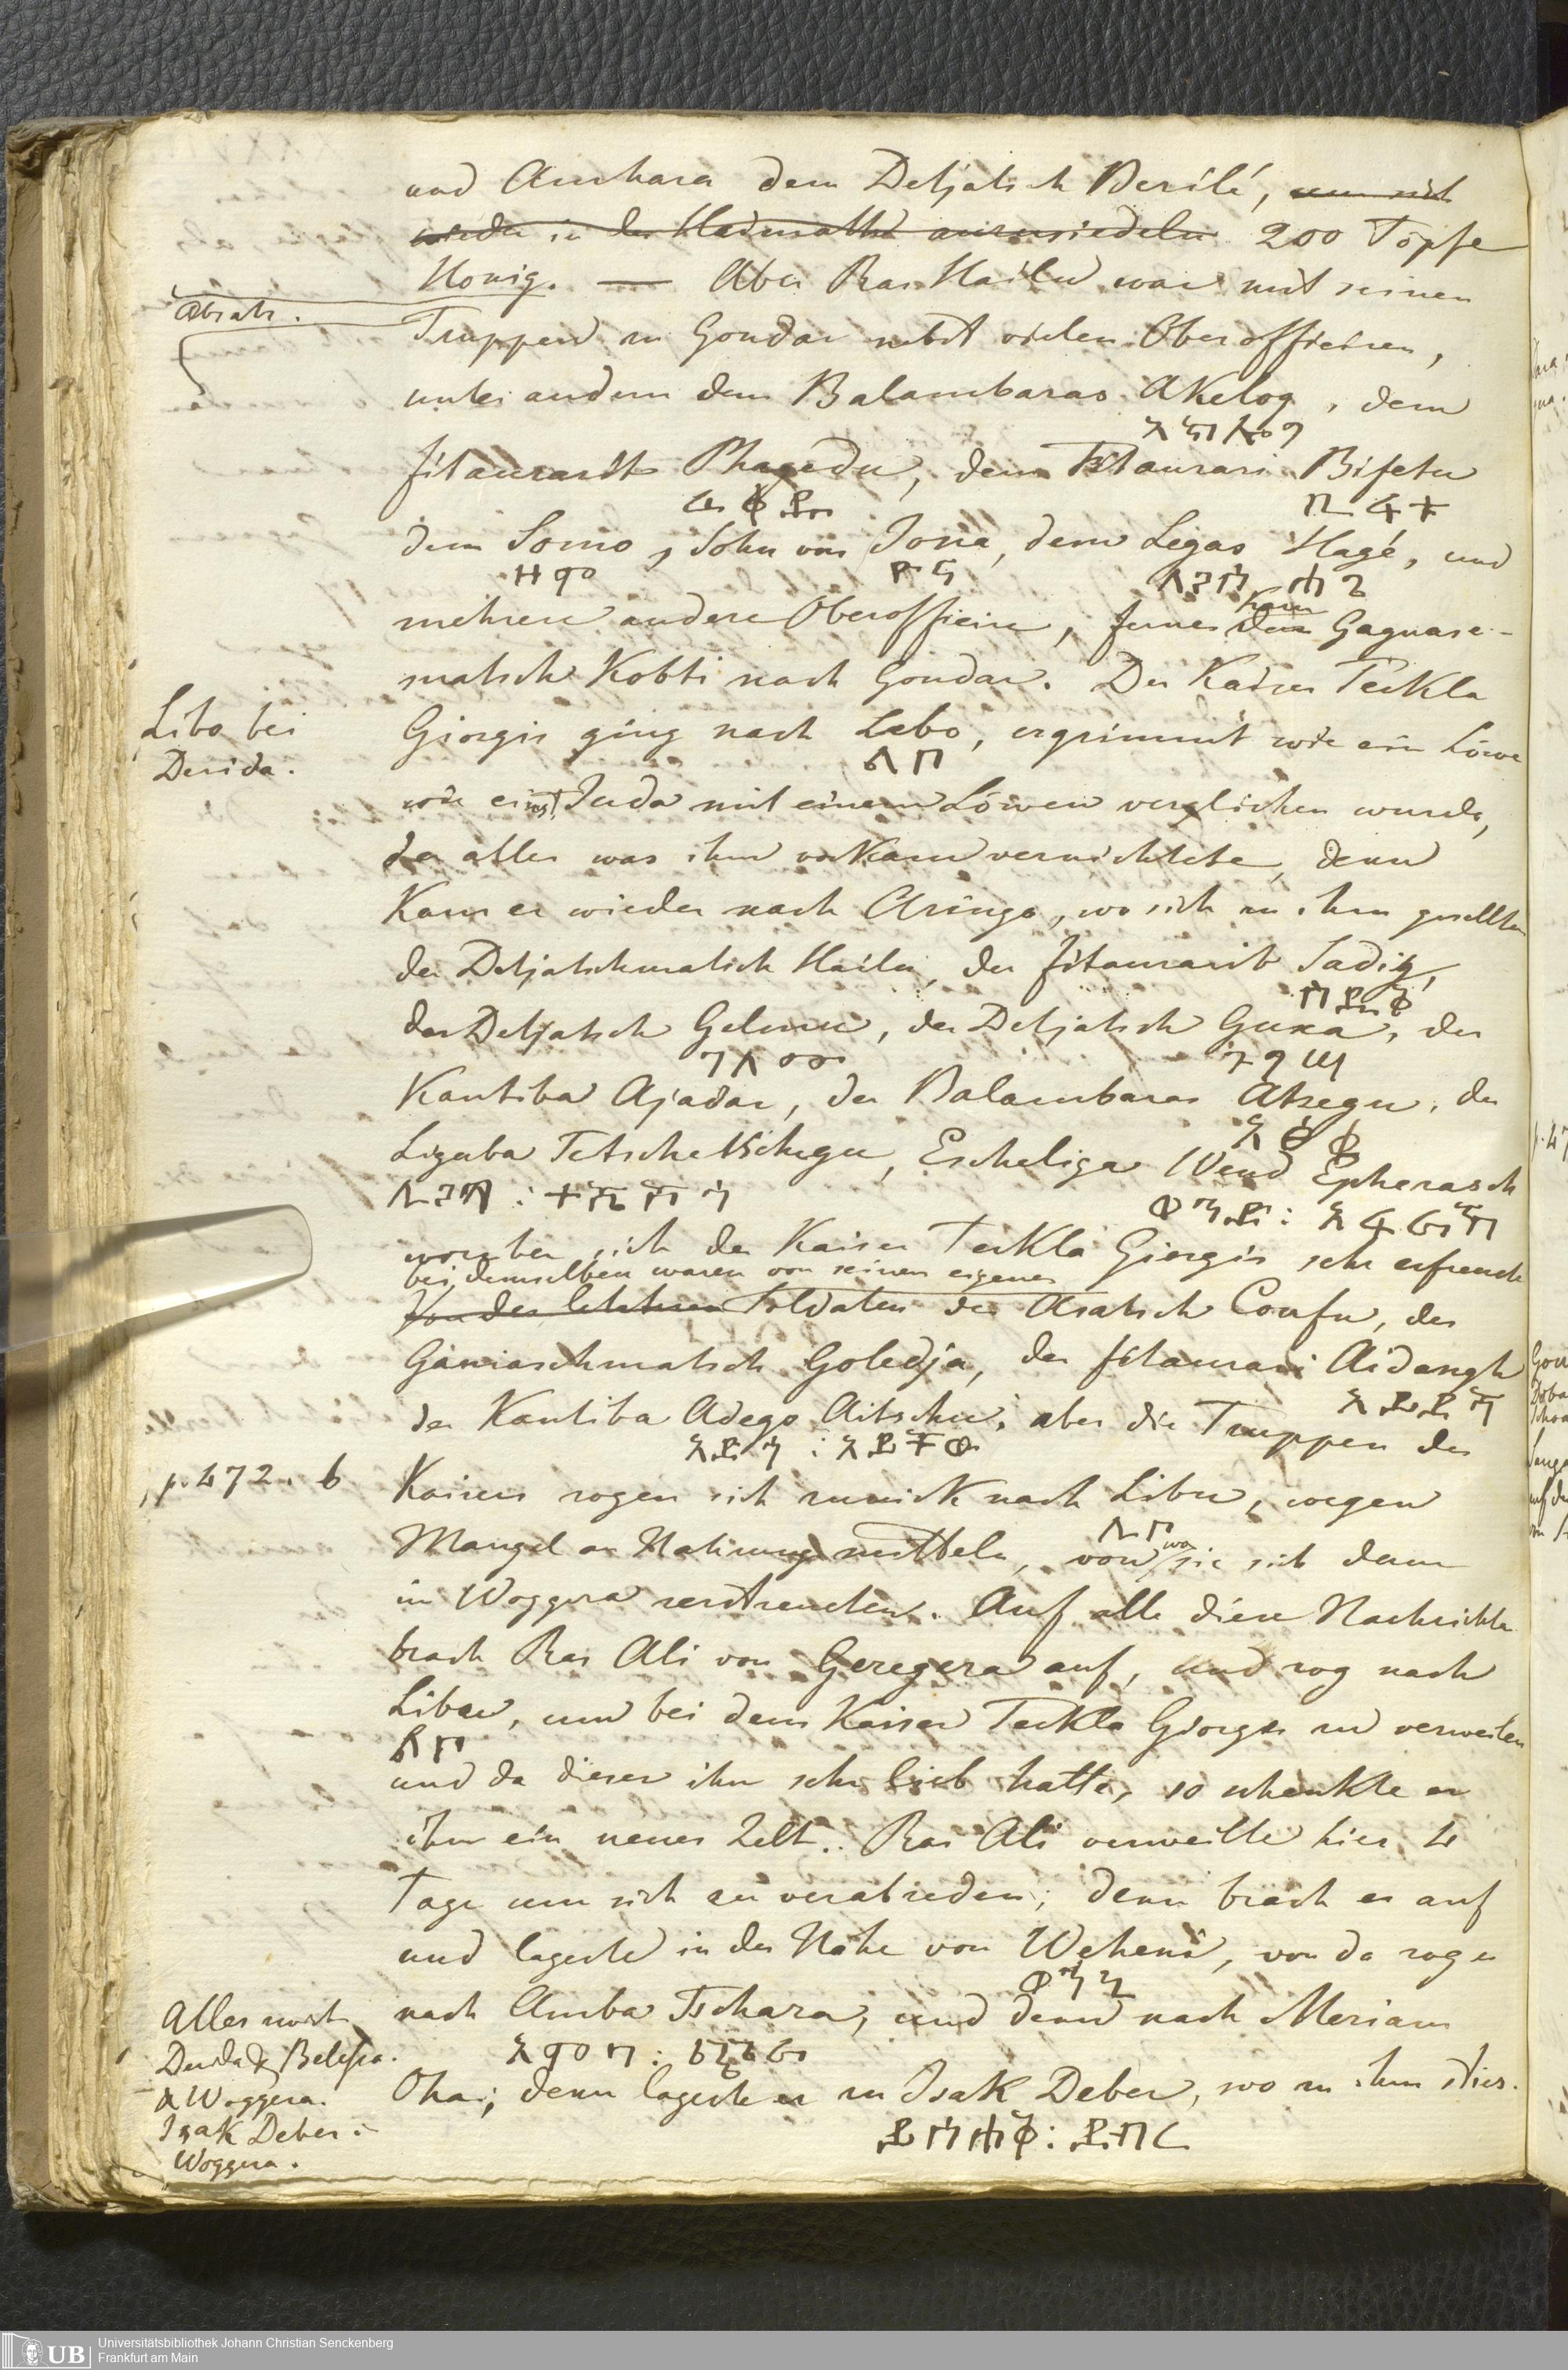 und Amhara dem Detjatsch Berilé, um sich
wieder in der Heimath anzusiedeln 200 Töpfe
Honig. — Aber Ras Hailu war mit seinen
Absatz.
Truppen in Gondar nebst vielen Oberofficiren,
unter andern dem Balambaras Akelog, dem
አኄሎግ
fitaurari Phagedu, dem Fitaurari Bifetu
ቢፈተ
dem Somo, Sohn von Jona, dem Legas Hagé, und
ዞሞ ዮና ለጋስ ሐጊ
mehrere andere Oberofficire, ferner kam Gagnase-
matsch Kobti nach Gondar. Der Kaiser Teckla
Libo bei
Derida.
Giorgis ging nach Lebo, ergrimmt wie ein Löwe
ሊቦ
wie einst Juda mit einem Löwen verglichen wurde,
der alles was ihm vorkam vernichtete, denn
Kam er wieder nach Aringo, wo sich zu ihm gesellten
der Detjatschmatsch Hailu, der fitaurarit Sadig,
ሳዲቅ
der Detjatsch Gelmu, der Detjatsch Guxa, der
ገልሙ ጉግሣ
Kantiba Ajadar, der Balambaras Atzegu, der
Ligaba Tetschetschegu, Escheliga Wend Epherasch
ወንድ: አፈራሽ
worüber sich der Kaiser Teckla Giorgis sehr erfreute
bei demselben waren von seinen eigenen
Von der letzteren Soldaten der Asatsch Confu, der
Ganiaschmatsch Goledja, der fitaurari Aidangh
der Kantiba Adego Aitschu, aber die Truppen des
አደጎ : አይችው
p. 472. b
Kaisers zogen sich zurück nach Libu, wegen
ሊቦ
Mangel an Nahrungsmitteln, von wo sie sich dann
in Woggera zerstreuten. Auf alle diese Nachrichten
brach Ras Ali von Geregera auf, und zog nach
Libu, um bei dem Kaiser Teckla Giorgis zu verweilen
ሊቦ
und da dieser ihn sehr lieb hatte, so schenkte er
ihm ein neues Zelt. Ras Ali verweilte hier 4
Tage um sich zu verabreden; denn brach er auf
und lagerte in der Nähe von Weheni, von da zog er
ወኅኒ
nach Amba Tschara, und denn nach Meriam
አምባ : ጫራ
Oha; denn lagerte er zu Isak Deber, wo zu ihm sties.
ይስሐቅ: ደብር
Alles nach
Derida & Belessa.
& Woggera.
Isak Deber in
Woggera.
UB Universitätsbibliothek Johann Christian Senckenberg
Frankfurt am Main